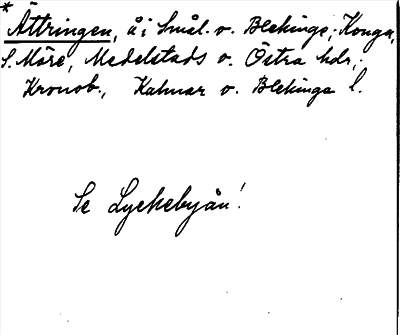 * Ättringen, å i Smål. o. Blekinge; Konga,
S. Möre, Medelstads o. Östra hdr,;
Kronob., Kalmar o. Blekinge l.
Se Lyckebyån!